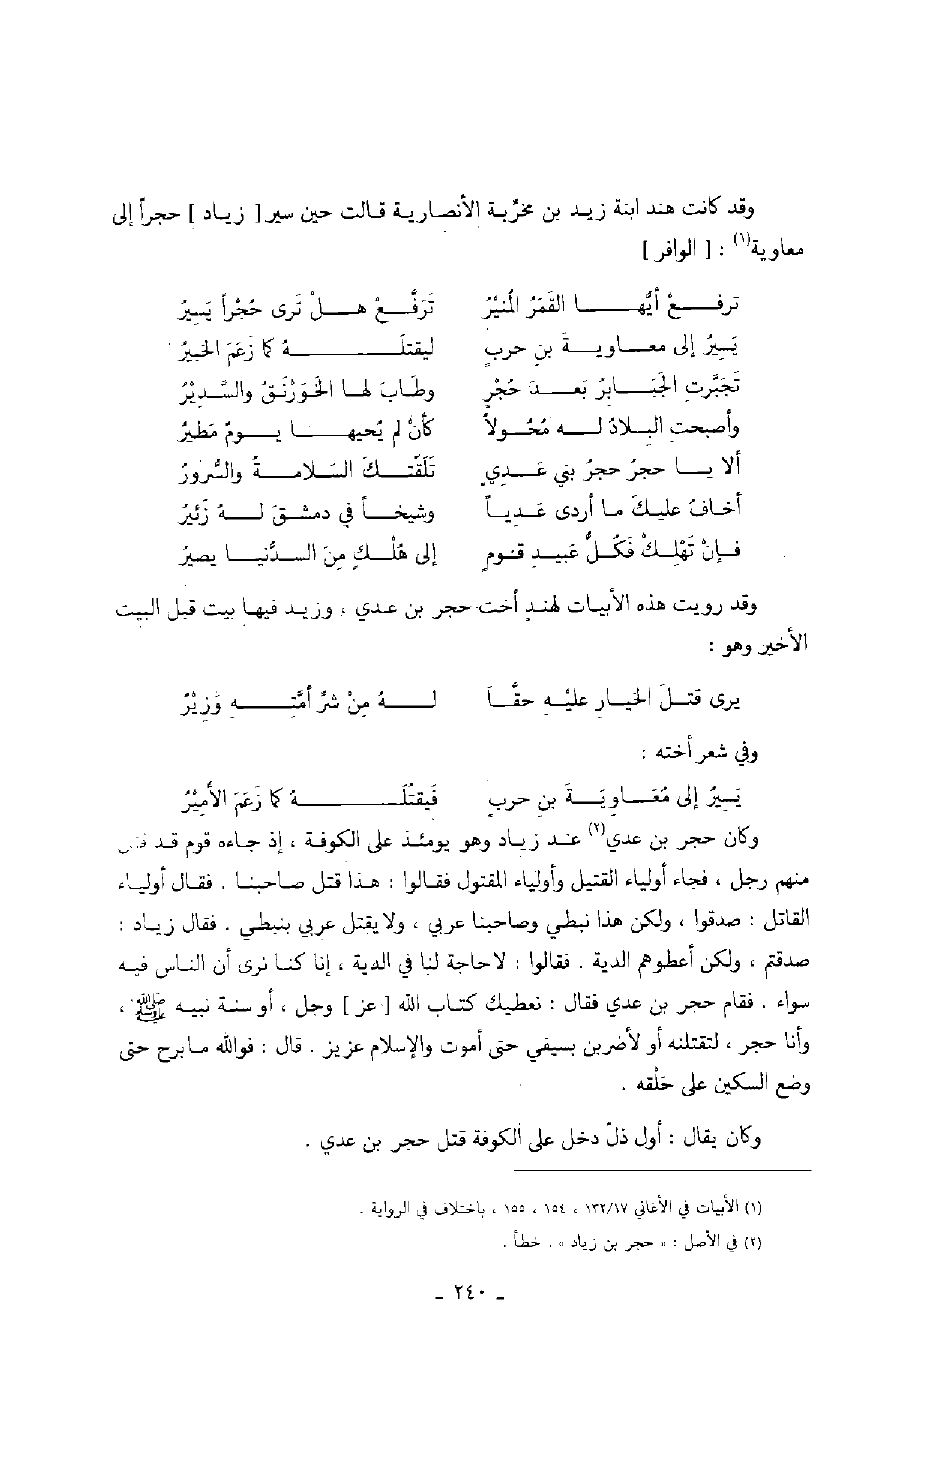 وقد كانت هند ابنة زيد بن مخرّبة الأنصارية قالت حين سير [ زياد ] حجراً إلى
معاوية(١) : [ الوافر ]
ترفع أيُّها القَمَرُ المُنيْرُ تَرَفَّعْ هلْ تَرى حُجْراً يَسِيرُ
يَسِيرُ إلى معاويةَ بن حربٍ ليقتلَهُ كما زَعَمَ الخبيرُ
تَجَبَّرتِ الجَبابرُ بَعدَ حُجْرٍ وطَابَ لها الخَوَرْنَقُ والسَّديْرُ
وأصبحتِ البلادُ له مُحُولاً كأنْ لم يُحيها يومٌ مَطيرُ
ألا يا حجرُ حجرُ بني عَديٍ تَلَقَّتكَ السَّلامةُ والسُّرورُ
أخافُ عليكَ ما أردى عَدياً وشيخاً في دمشقَ لهُ زَئيرُ
فإنْ تَهْلكْ فكلُّ عَميدِ قومٍ إلى هُلْكٍ مِنَ الدُّنيا يصيرُ
وقد رويت هذه الأبيات لهندٍ أخت حجر بن عدي ، وزيد فيها بيت قبل البيت
الأخير وهو :
يرى قتلَ الخيارِ عليْهِ حقَّاً لهُ مِنْ شرِّ أمَّتِهِ وَزِيْرُ
وفي شعر أخته :
يَسِيرُ إلى مُعَاويَةَ بن حربٍ فَيقتْلَهُ كما زَعَمَ الأميْرُ
وكان حجر بن عدي(٢) عند زياد وهو يومئذ على الكوفة ، إذ جاءه قوم قد قتل
منهم رجل ، فجاء أولياء القتيل وأولياء المقتول فقالوا : هذا قتل صاحبنا . فقال أولياء
القاتل : صدقوا ، ولكن هذا نبطي وصاحبنا عربي ، ولا يقتل عربي بنبطي . فقال زياد :
صدقتم ، ولكن أعطوهم الدية . فقالوا : لا حاجة لنا في الدية ، إنا كنا نرى أن الناس فيه
سواء . فقام حجر بن عدي فقال : نعطيك كتاب الله [ عز ] وجل ، أو سنة نبيه ﷺ ،
وأنا حجر ، لتقتلنه أو لأضربن بسيفي حتى أموت والإسلام عزيز . قال : فوالله ما برح حتى
وضع السكين على حَلْقه .
وكان يقال : أول ذلّ دخل على الكوفة قتل حجر بن عدي .
(١) الأبيات في الأغاني ١٣٢/١٧ ، ١٥٤ ، ١٥٥ ، باختلاف في الرواية .
(٢) في الأصل : « حجر بن زياد » . خطأ .
ـ ٢٤٠ ـ